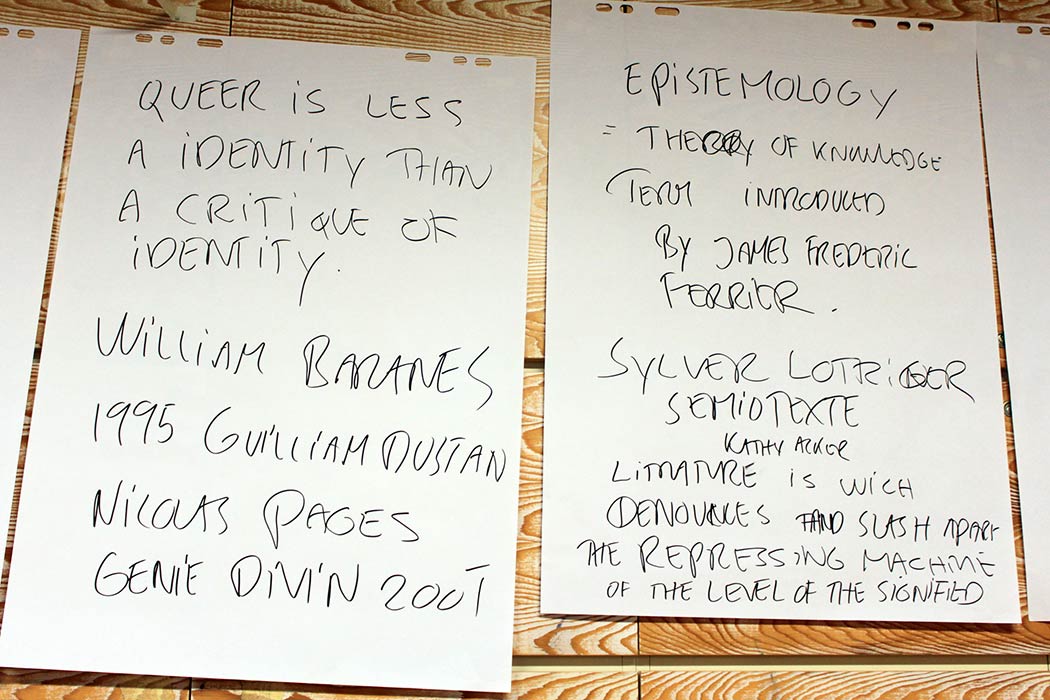 QUEER iS LESS
A iDENTiTY THAN
A CRiTiQUE OF
iDENTiTY.
WiLLiAM BARANES
1995 GUiLLiAM DUSTAN
NiCOLAS PAGES
GENiE DiViN 2001
EPiSTEMOLOGY
= THEORY OF KNOWLEDGE
TERM iNTRODUCED
BY JAMES FREDERiC
FERRiER.
SYLVER LOTRiGER
SEMiOTEXTE
KATHY ACKER
LiTTRATURE iS WiCH
DENOUNCES AND SLASH APART
THE REPRESSiNG MACHiNE
OF THE LEVEL OF THE SiGNiFiED